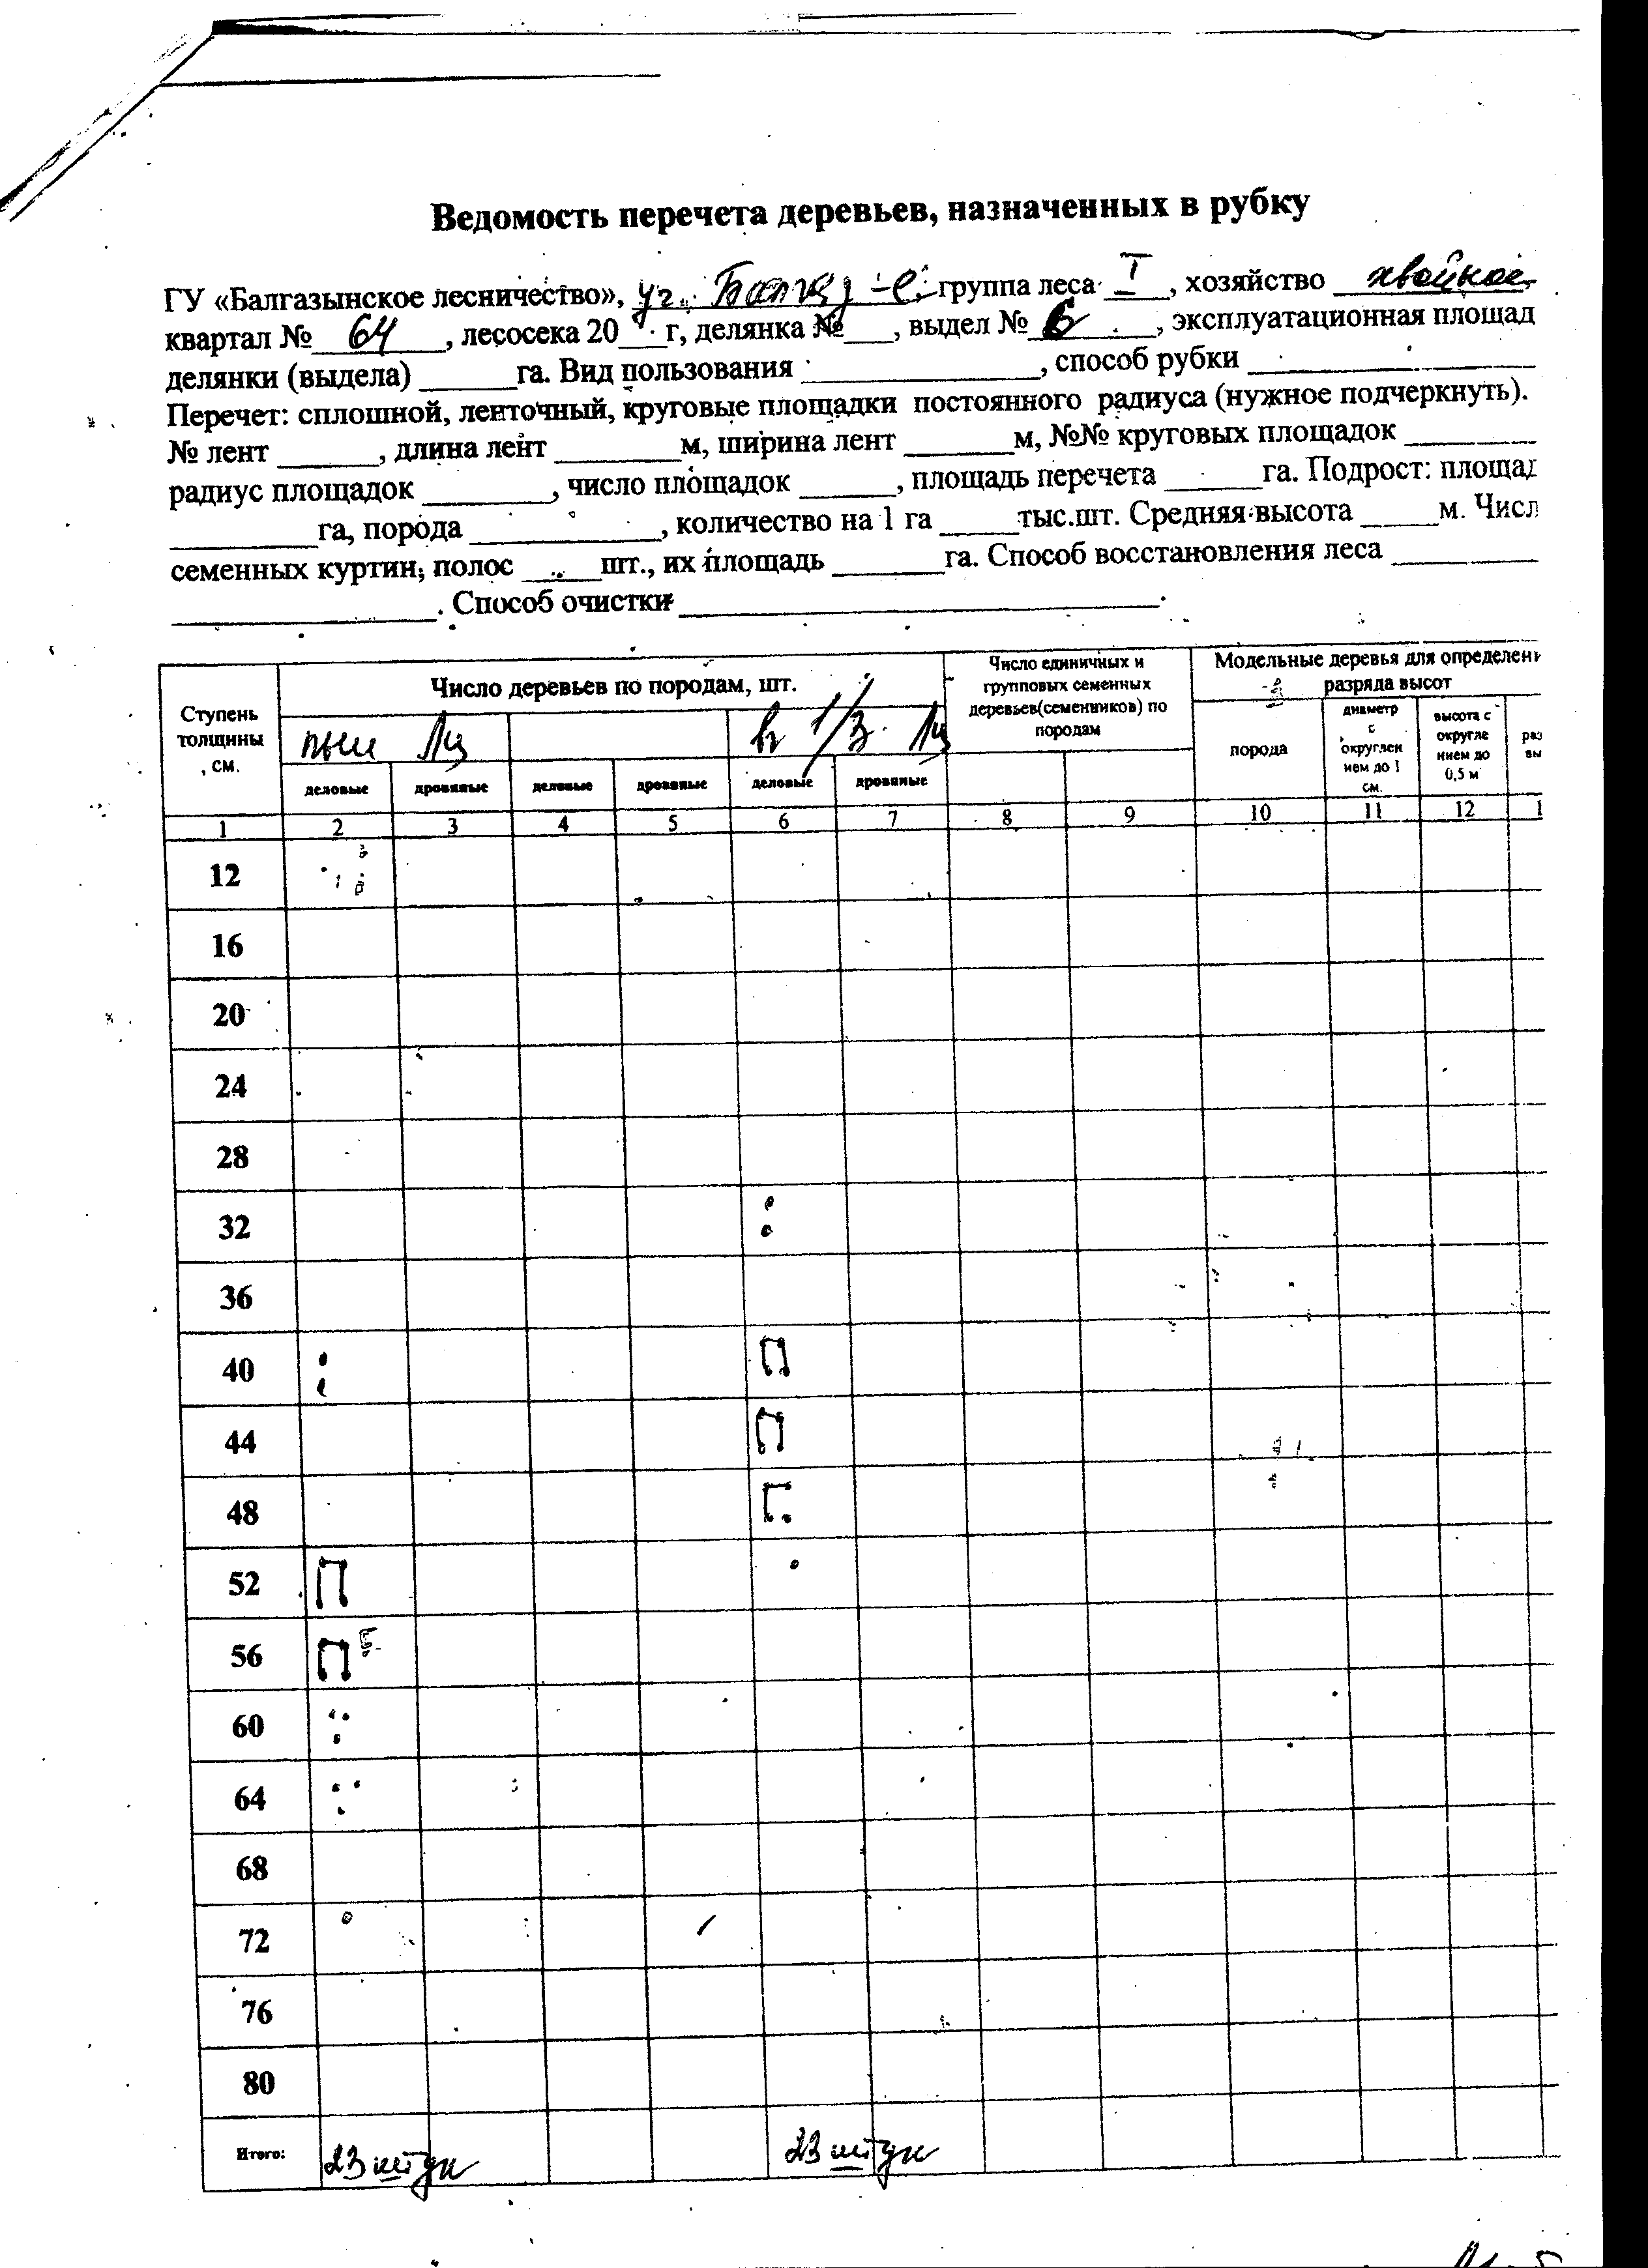 Ведомость перечета деревьев, назначенных в рубку
ГУ «Балгазынское лесничество», уч. группа леса I, хозяйство хвойное
квартал № 64, лесосека 20___г, делянка №___, выдел № 6, эксплуатационная площад
делянки (выдела) ______га. Вид пользования ______________, способ рубки ______________
Перечет: сплошной, ленточный, круговые площадки постоянного радиуса (нужное подчеркнуть).
№ лент ______, длина лент ________м, ширина лент _______м, №№ круговых площадок ________
радиус площадок ________, число площадок ______, площадь перечета ______га. Подрост: площад
_________га, порода ____________, количество на 1 га _____тыс.шт. Средняя высота _____м. Числ
семенных куртин, полос _____шт., их площадь _______га. Способ восстановления леса _________
________________. Способ очистки ______________________________.
Ступень толщины, см.
Число деревьев по породам, шт.
Число единичных и групповых семенных деревьев(семенников) по породам
Модельные деревья для определени
разряда высот
пни Лц
в 1/3 Лц
деловые дровяные деловые дровяные деловые дровяные
порода
диаметр с округлен ием до 1 см.
высота с округле нием до 0,5 м
раз
вы
1 2 3 4 5 6 7 8 9 10 11 12 1
12
16
20
24
28
32
36
40
44
48
52
56
60
64
68
72
76
80
Итого: 23 штук 23 штук